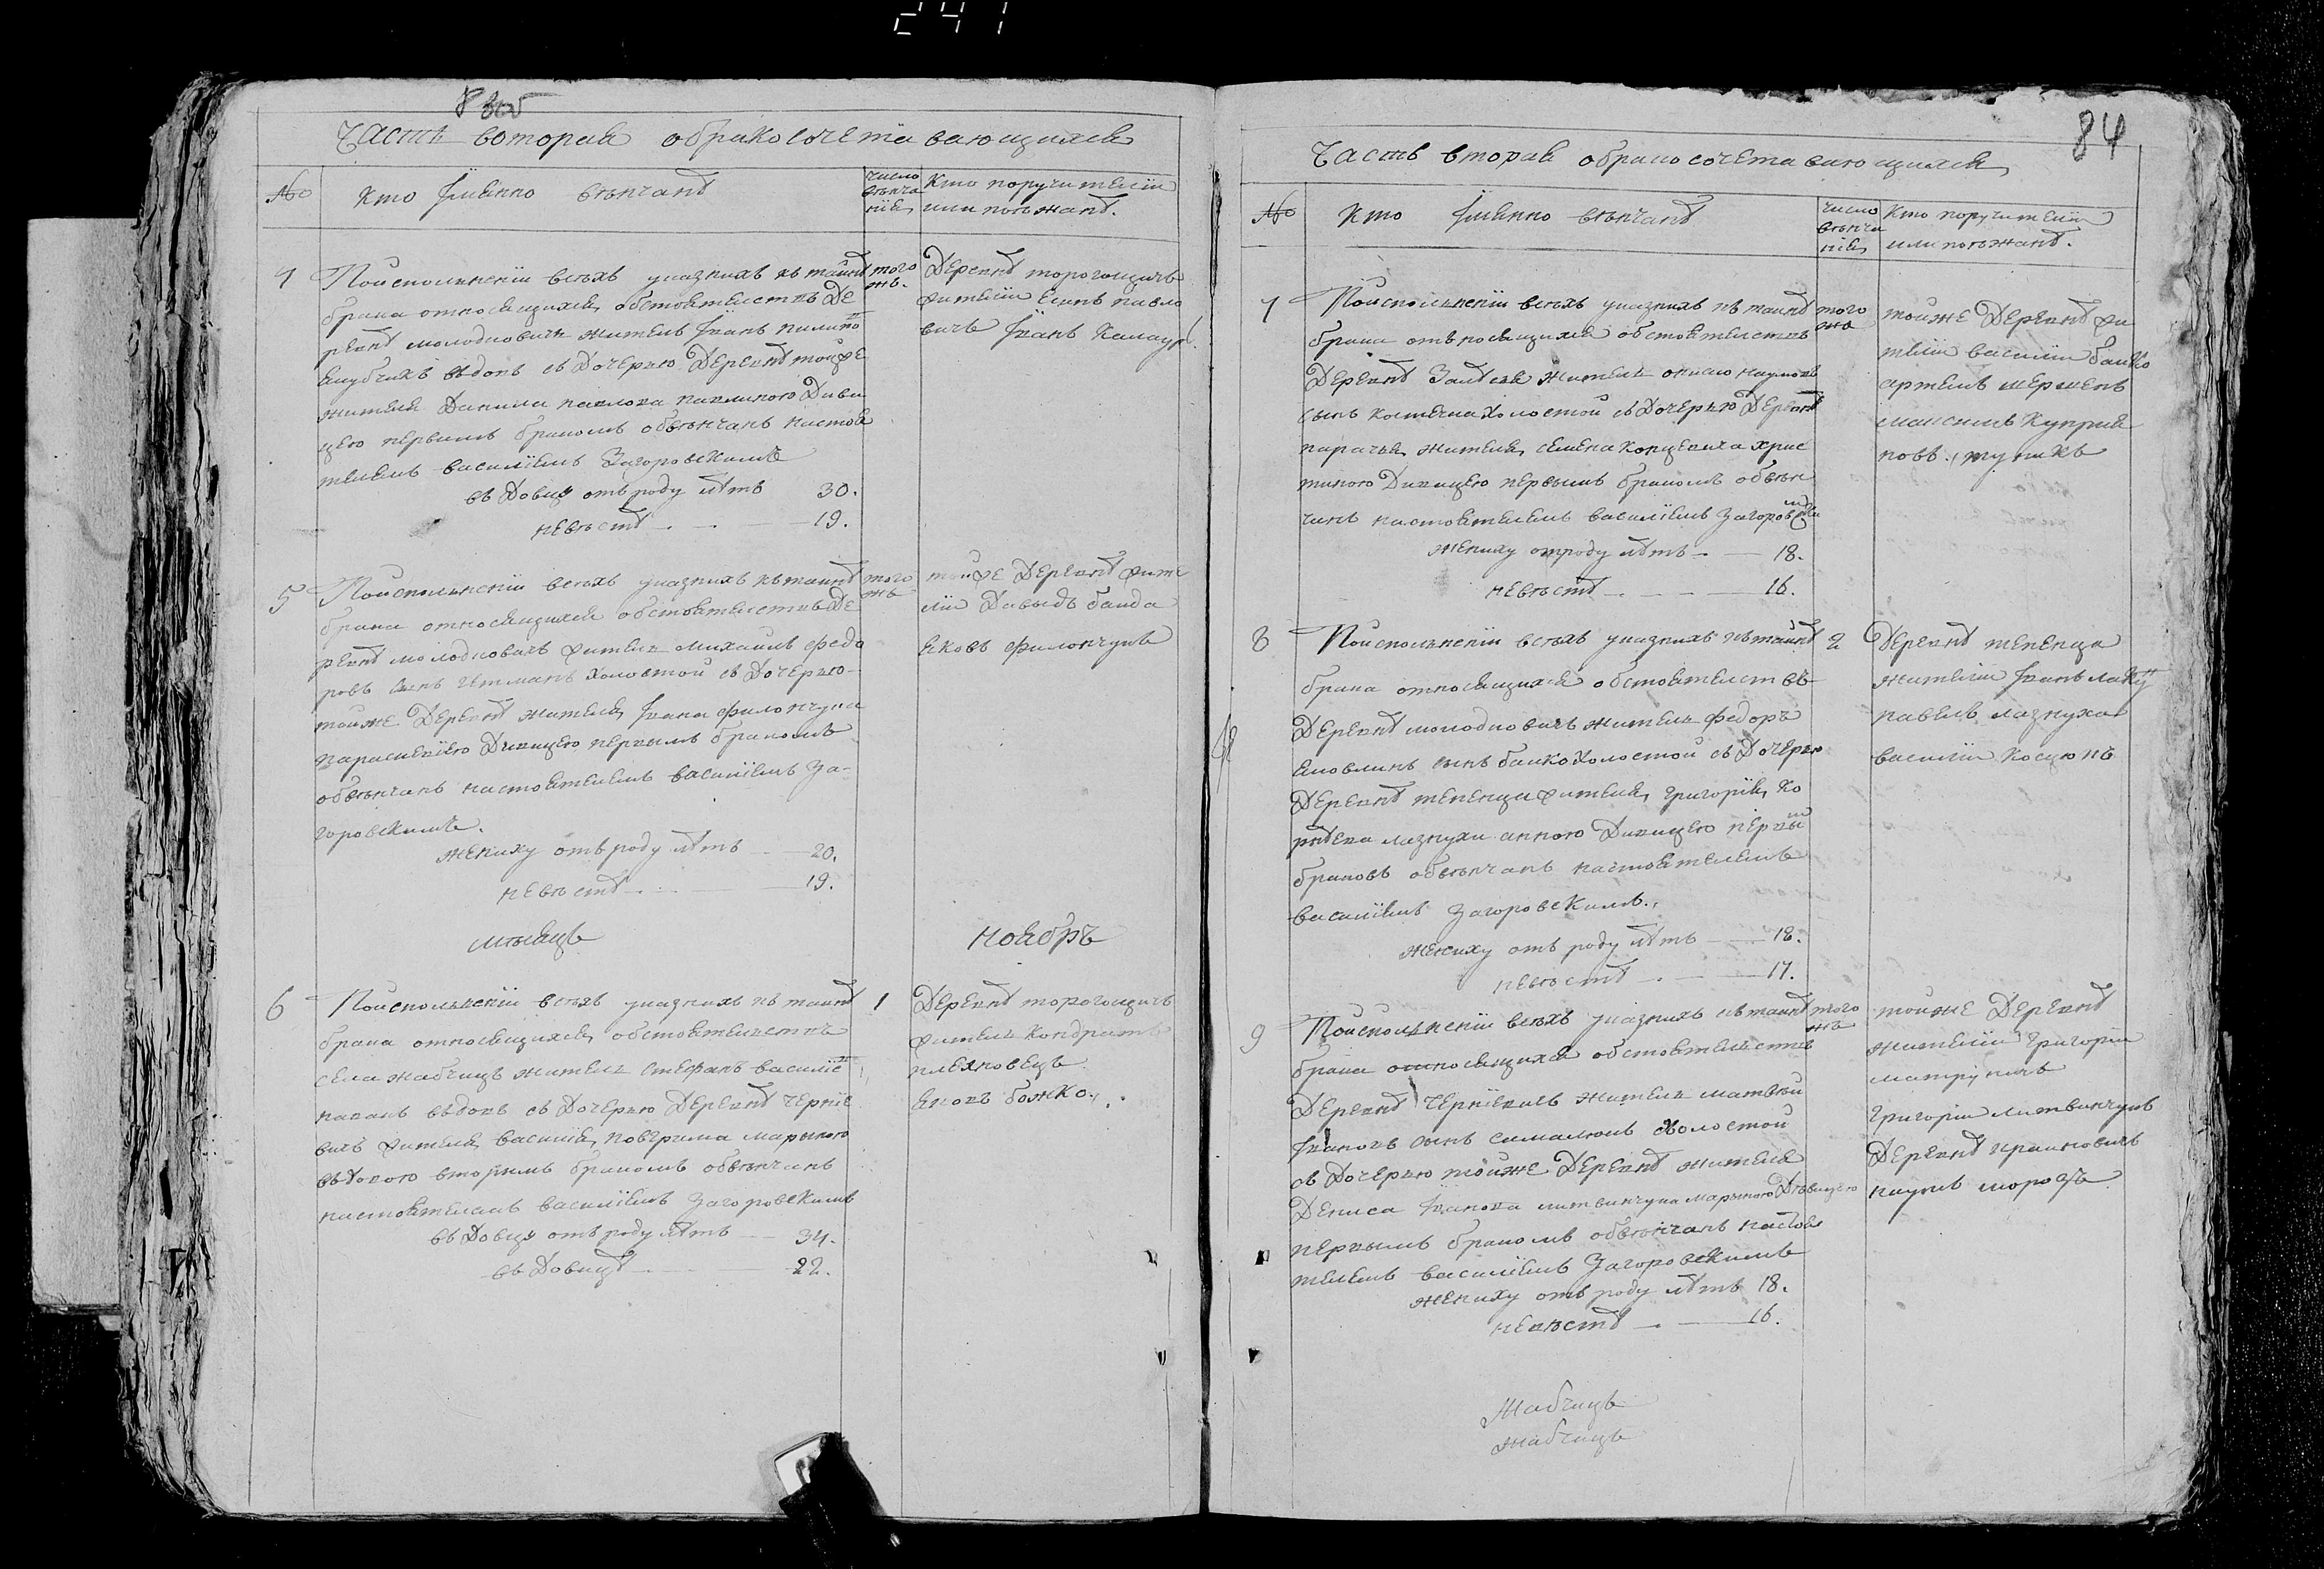 241
Часть вторая обракосочетавающихся
№ Кто Імянно венчанъ
число венчанія
Кто поручителіи или поезжанѣ.
4 Поисполненіи всѣхъ указныхъ къ таинѣ
брака относящихся обстоятелствъ Де
ревнѣ молодковичъ житель Іванъ
вдовъ съ Дочерью Деревнѣ тойже
жителя Данила павлова Диви
цею первымъ бракомъ обвѣнчанъ настоя
телемъ василіемъ Загоровскимъ
вдовцу отъ роду лѣтъ 30.
невѣстѣ 19.
того жъ.
Деревнѣ
жителіи павло
вичъ Іванъ
5 Поисполненіи всѣхъ указныхъ къ таинѣ
брака относящихся обстоятелствъ Де
ревнѣ молодковичъ житель михаилъ федо
ровъ сынъ гетманъ холостой съ Дочерью
тойже Деревнѣ жителя Івана филончука
параскевіею Дивицею первымъ бракомъ
обвѣнчанъ настоятелемъ василіемъ За-
горовскимъ.
жениху отъ роду лѣтъ 20.
невѣстѣ 19.
того жъ
тойже Деревнѣ жите
ліи Давыдъ банда
яковъ филончукъ
мѣсяцъ ноябръ
6 Поисполненіи всѣхъ указныхъ къ таинѣ
брака относящихся обстоятелствъ
села жабчицъ житель стефанъ василіе
вдовъ съ Дочерью Деревнѣ черніе
вичъ жителя василія марыною
вдовою вторымъ бракомъ обвѣнчанъ
настоятелемъ василіемъ Загоровскимъ
вдовцу отъ роду лѣтъ 34.
вдовицѣ 22.
1
Деревнѣ
житель Кондратъ
плехновецъ
яковъ божко.
84
Часть вторая обракосочетавающихся
№ Кто Імянно венчанѣ
число венчанія
Кто поручителіи
или поезжанѣ.
7 Поисполненіи всѣхъ указныхъ къ таинѣ
брака отъносящихся обстоятелствъ
Деревнѣ житель наумовъ
сынъ холостой съ Дочерью Деревнѣ
парачья жителя семена концевича хрис
тиною Дивицею первымъ бракомъ обвѣн
чанъ настоятелемъ василіемъ Загоровским
жениху отроду лѣтъ 18.
невѣстѣ 16.
того жъ
тойже Деревнѣ жи
теліи василіи банко
артемъ
максимъ Куприя
новъ
8 Поисполненіи всѣхъ указныхъ къ таинѣ
брака относящихся обстоятелствъ
Деревнѣ молодковичъ житель федоръ
сынъ банко холостой съ Дочерью
Деревнѣ тепенца жителя григорія Ко
лазнухи анною Дивицею первым
браковъ обвѣнчанъ настоятелемъ
василіемъ Загоровскимъ.
жениху отъ роду лѣтъ 18.
невѣстѣ 17.
2
Деревнѣ тепенца
жителіи Іванъ
павелъ лазнуха
василіи косцюкъ
9 Поисполненіи всѣхъ указныхъ къ таинѣ
брака относящихся обстоятелствъ
Деревнѣ Черніевичъ житель матвѣй
Івановъ сынъ холостой
съ Дочерью тойже Деревнѣ жителя
Дениса Іванова литвинчука марыною Дѣвицею
первымъ бракомъ обвѣнчанъ настоя
телемъ василіемъ Загоровскимъ
жениху отъ роду лѣтъ 18.
невѣстѣ 16.
того жъ
тойже Деревнѣ
жителіи григоріи
григоріи литвинчукъ
Деревнѣ
наумъ морозъ
Жабчицъ
жабчицъ